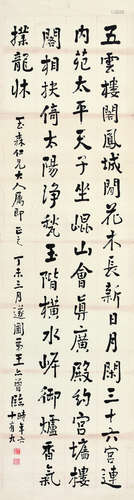 五雲樓閣鳳城間花木長新日月閒三十六宮連
內苑太平天子坐崐山會真廣殿約宮墻樓
閣相扶倚太陽淨甃玉階橫水岸御爐香氣
撲龍牀
玉森仁兄大人屬即正之 丁未三月 王